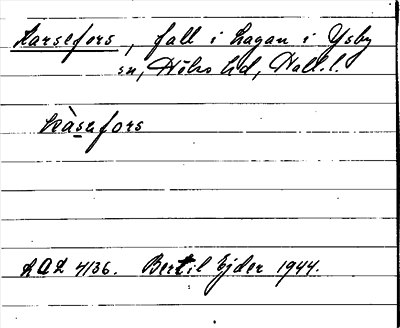 Karsefors, fall i Lagan i Ysby
sn, Höks hd, Hall. l.
kàsefors
LAL 4136. Bertil Ejder 1944.